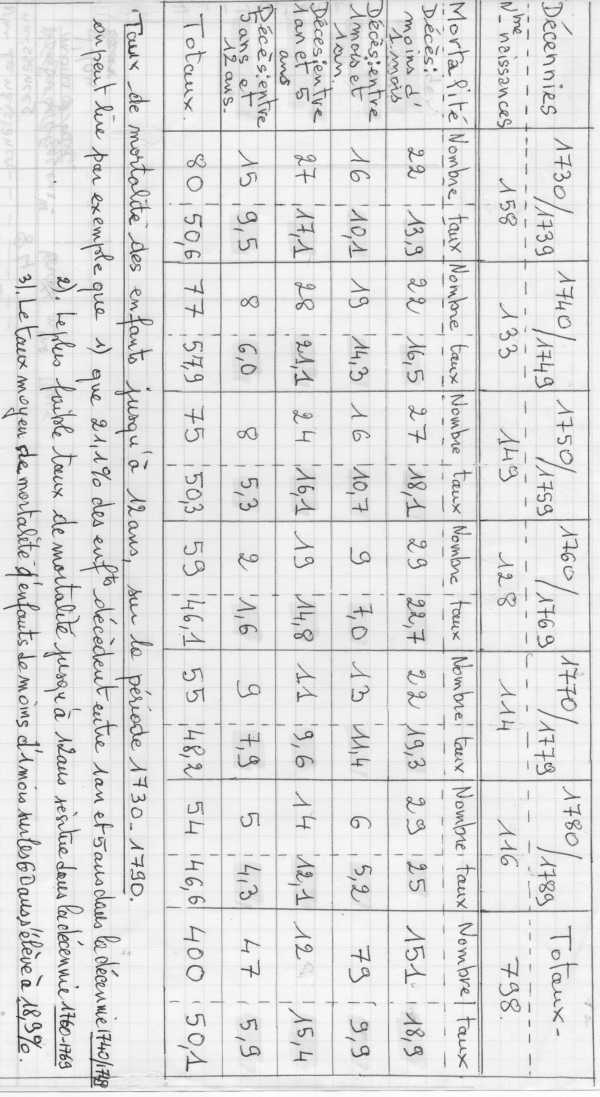 Décennies 1730/1739 1740/1749 1750/1759 1760/1769 1770/1779 1780/1789 Totaux-
Nbre naissances 158 133 149 128 114 116 798.
Mortalité Nombre taux Nombre taux Nombre taux Nombre taux Nombre taux Nombre taux Nombre taux
Décès: moins d'1 mois 22 13,9 22 16,5 27 18,1 29 22,7 22 19,3 29 25 151 18,9
Décès: entre 1 mois et 1 an. 16 10,1 19 14,3 16 10,7 9 7,0 13 11,4 6 5,2 79 9,9
Décès: entre 1 an et 5 ans 27 17,1 28 21,1 24 16,1 19 14,8 11 9,6 14 12,1 12 15,4
Décès: entre 5 ans et 12 ans. 15 9,5 8 6,0 8 5,3 2 1,6 9 7,9 5 4,3 47 5,9
Totaux. 80 50,6 77 57,9 75 50,3 59 46,1 55 48,2 54 46,6 400 50,1
Taux de mortalité des enfants jusqu'à 12 ans, sur la période 1730-1790.
on peut lire par exemple que 1) que 21,1% des enfts décèdent entre 1 an et 5 ans dans la décennie 1740/1749
2). Le plus faible taux de mortalité jusqu'à 12 ans se situe dans la décennie 1760-1769
3). Le taux moyen de mortalité d'enfants de moins d'1 mois sur les 60 ans s'élève à 18,9%.